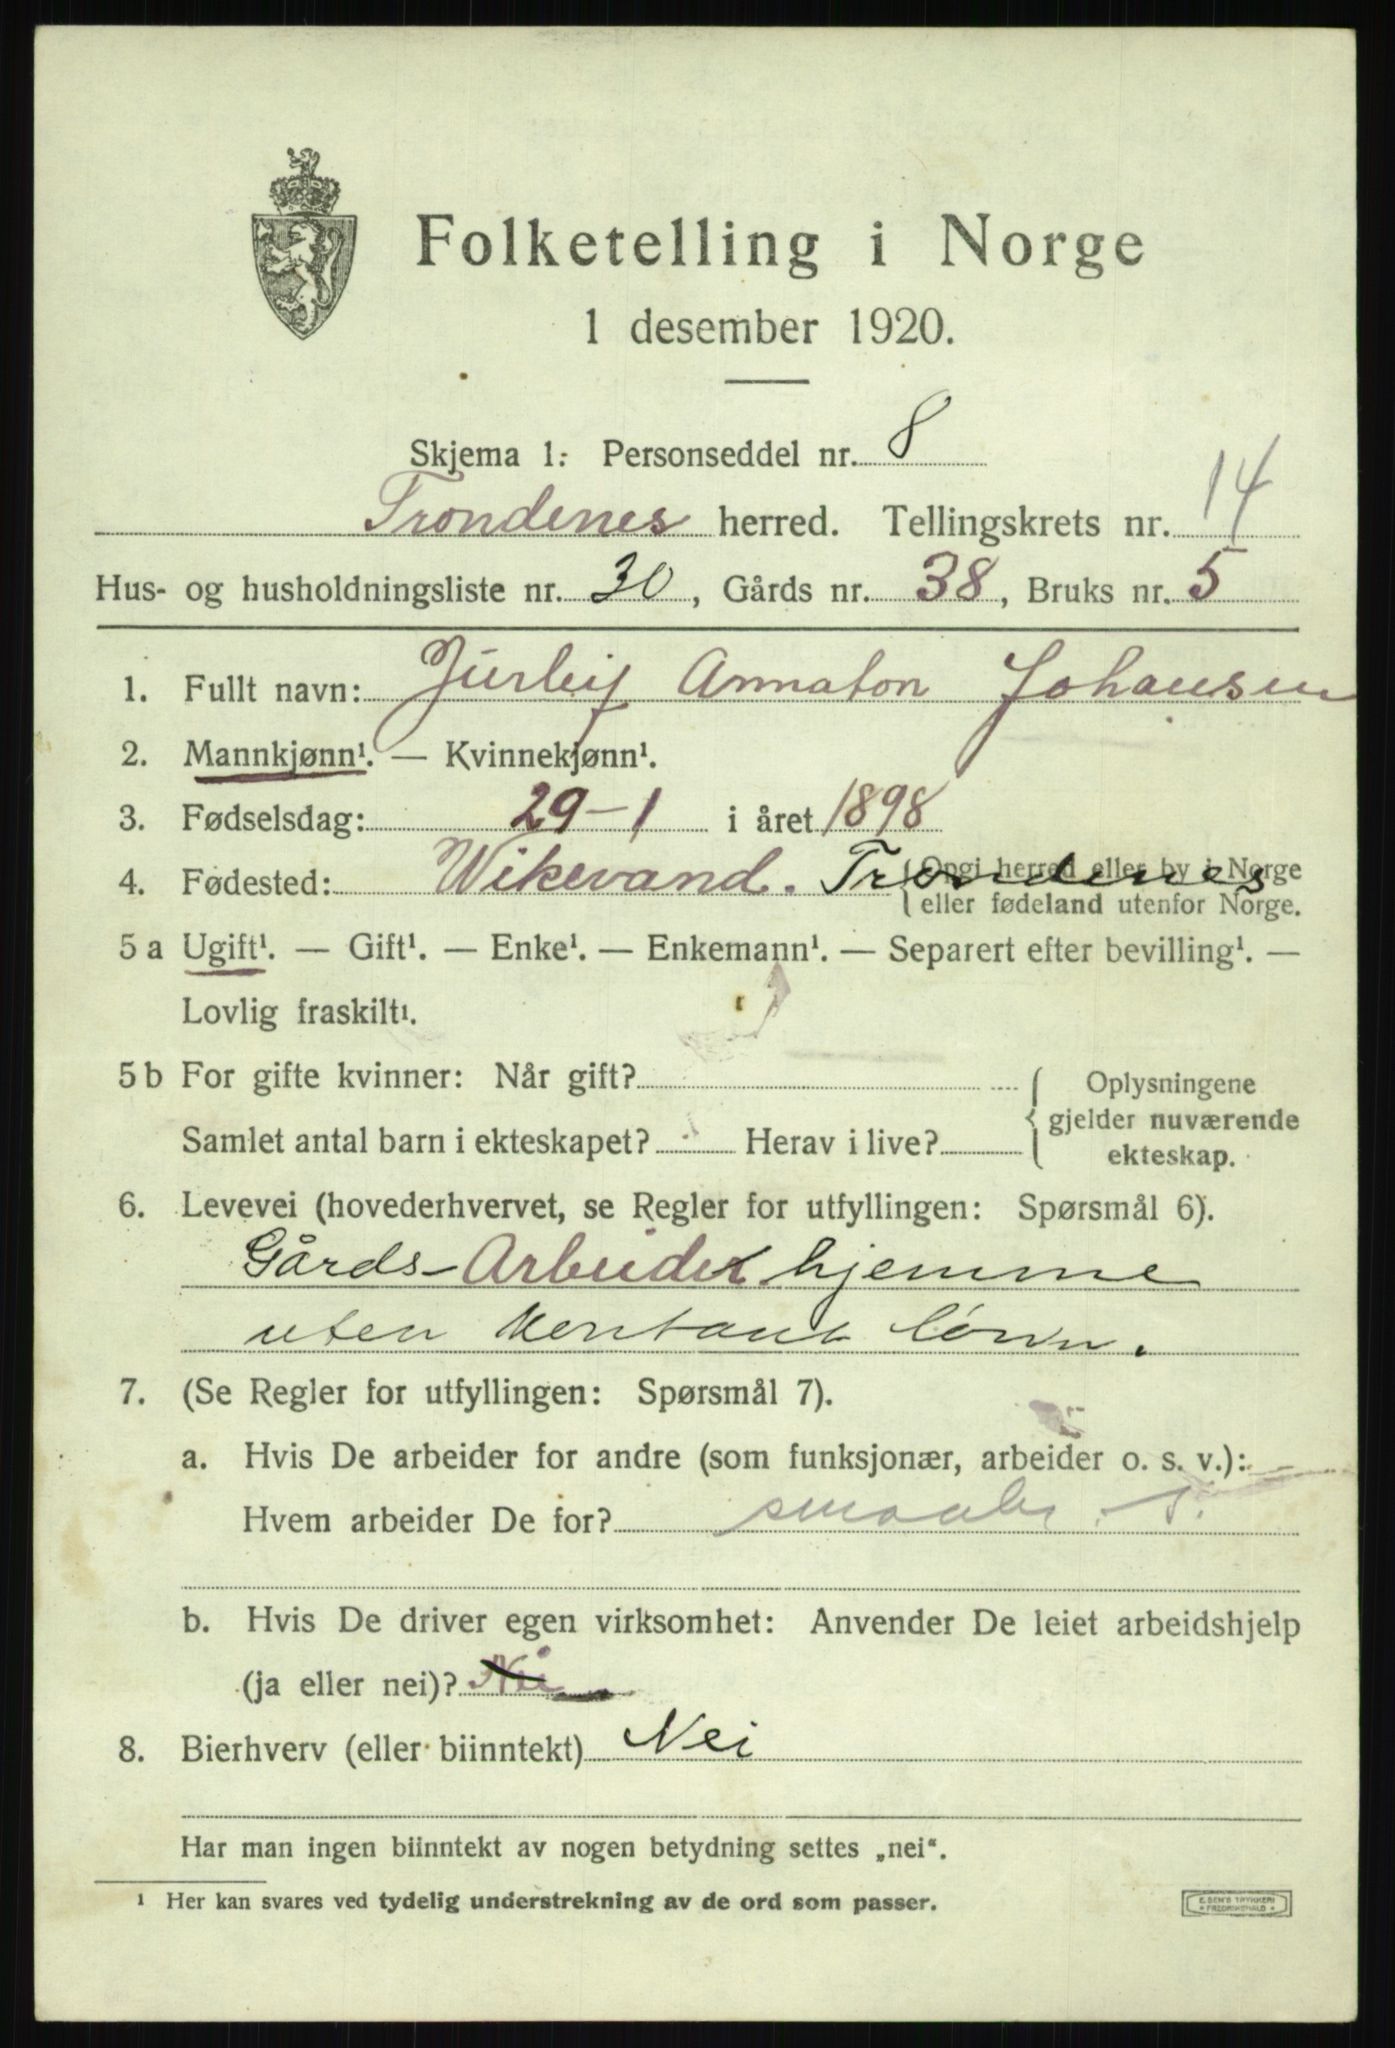 Folketelling i Norge
1 desember 1920.
Skjema 1: Personseddel nr. 8
Trondenes herred. Tellingskrets nr. 14
Hus- og husholdningsliste nr. 30, Gårds nr. 38, Bruks nr. 5
1. Fullt navn: Johansen
2. Mannkjønn¹. — Kvinnekjønn¹.
3. Fødselsdag: 29-1 i året 1898
4. Fødested: Wikevand. Trondenes {Opgi herred eller by i Norge
eller fødeland utenfor Norge.
5 a Ugift¹. — Gift¹. — Enke¹. — Enkemann¹. — Separert efter bevilling¹. —
Lovlig fraskilt¹.
5 b For gifte kvinner: Når gift? Oplysningene
gjelder nuværende
Samlet antal barn i ekteskapet? Herav i live? ekteskap.
6. Levevei (hovederhvervet, se Regler for utfyllingen: Spørsmål 6).
Gårds-Arbeider hjemme
uten kontant lönn.
7. (Se Regler for utfyllingen: Spørsmål 7).
a. Hvis De arbeider for andre (som funksjonær, arbeider o. s. v.):
Hvem arbeider De for?
b. Hvis De driver egen virksomhet: Anvender De leiet arbeidshjelp
(ja eller nei)? Nei
8. Bierhverv (eller biinntekt) Nei
Har man ingen biinntekt av nogen betydning settes „nei“.
¹ Her kan svares ved tydelig understrekning av de ord som passer.
E. SEM'S TRYKKERI
* FREDRIKSHALD *